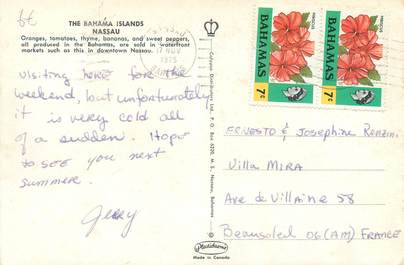 6€
THE BAHAMA ISLANDS
NASSAU
Oranges, tomatoes, thyme, bananas, and sweet peppers,
all produced in the Bahamas, are sold in waterfront
markets such as this in downtown Nassau.
17 NOV
1975
visiting here for the
weekend, but unfortunately
it is very cold all
of a sudden. Hope
to see you next
summer.
Jerry
Calypso Distributors Ltd., P. O. Box 6220, M. S., Nassau, Bahamas
Plastichrome
Made in Canada
HIBISCUS
BAHAMAS
7c
HIBISCUS
BAHAMAS
7c
ERNESTO & Josephine
Villa MIRA
Ave de Villaine 58
Beausoleil 06 (AM) FRANCE